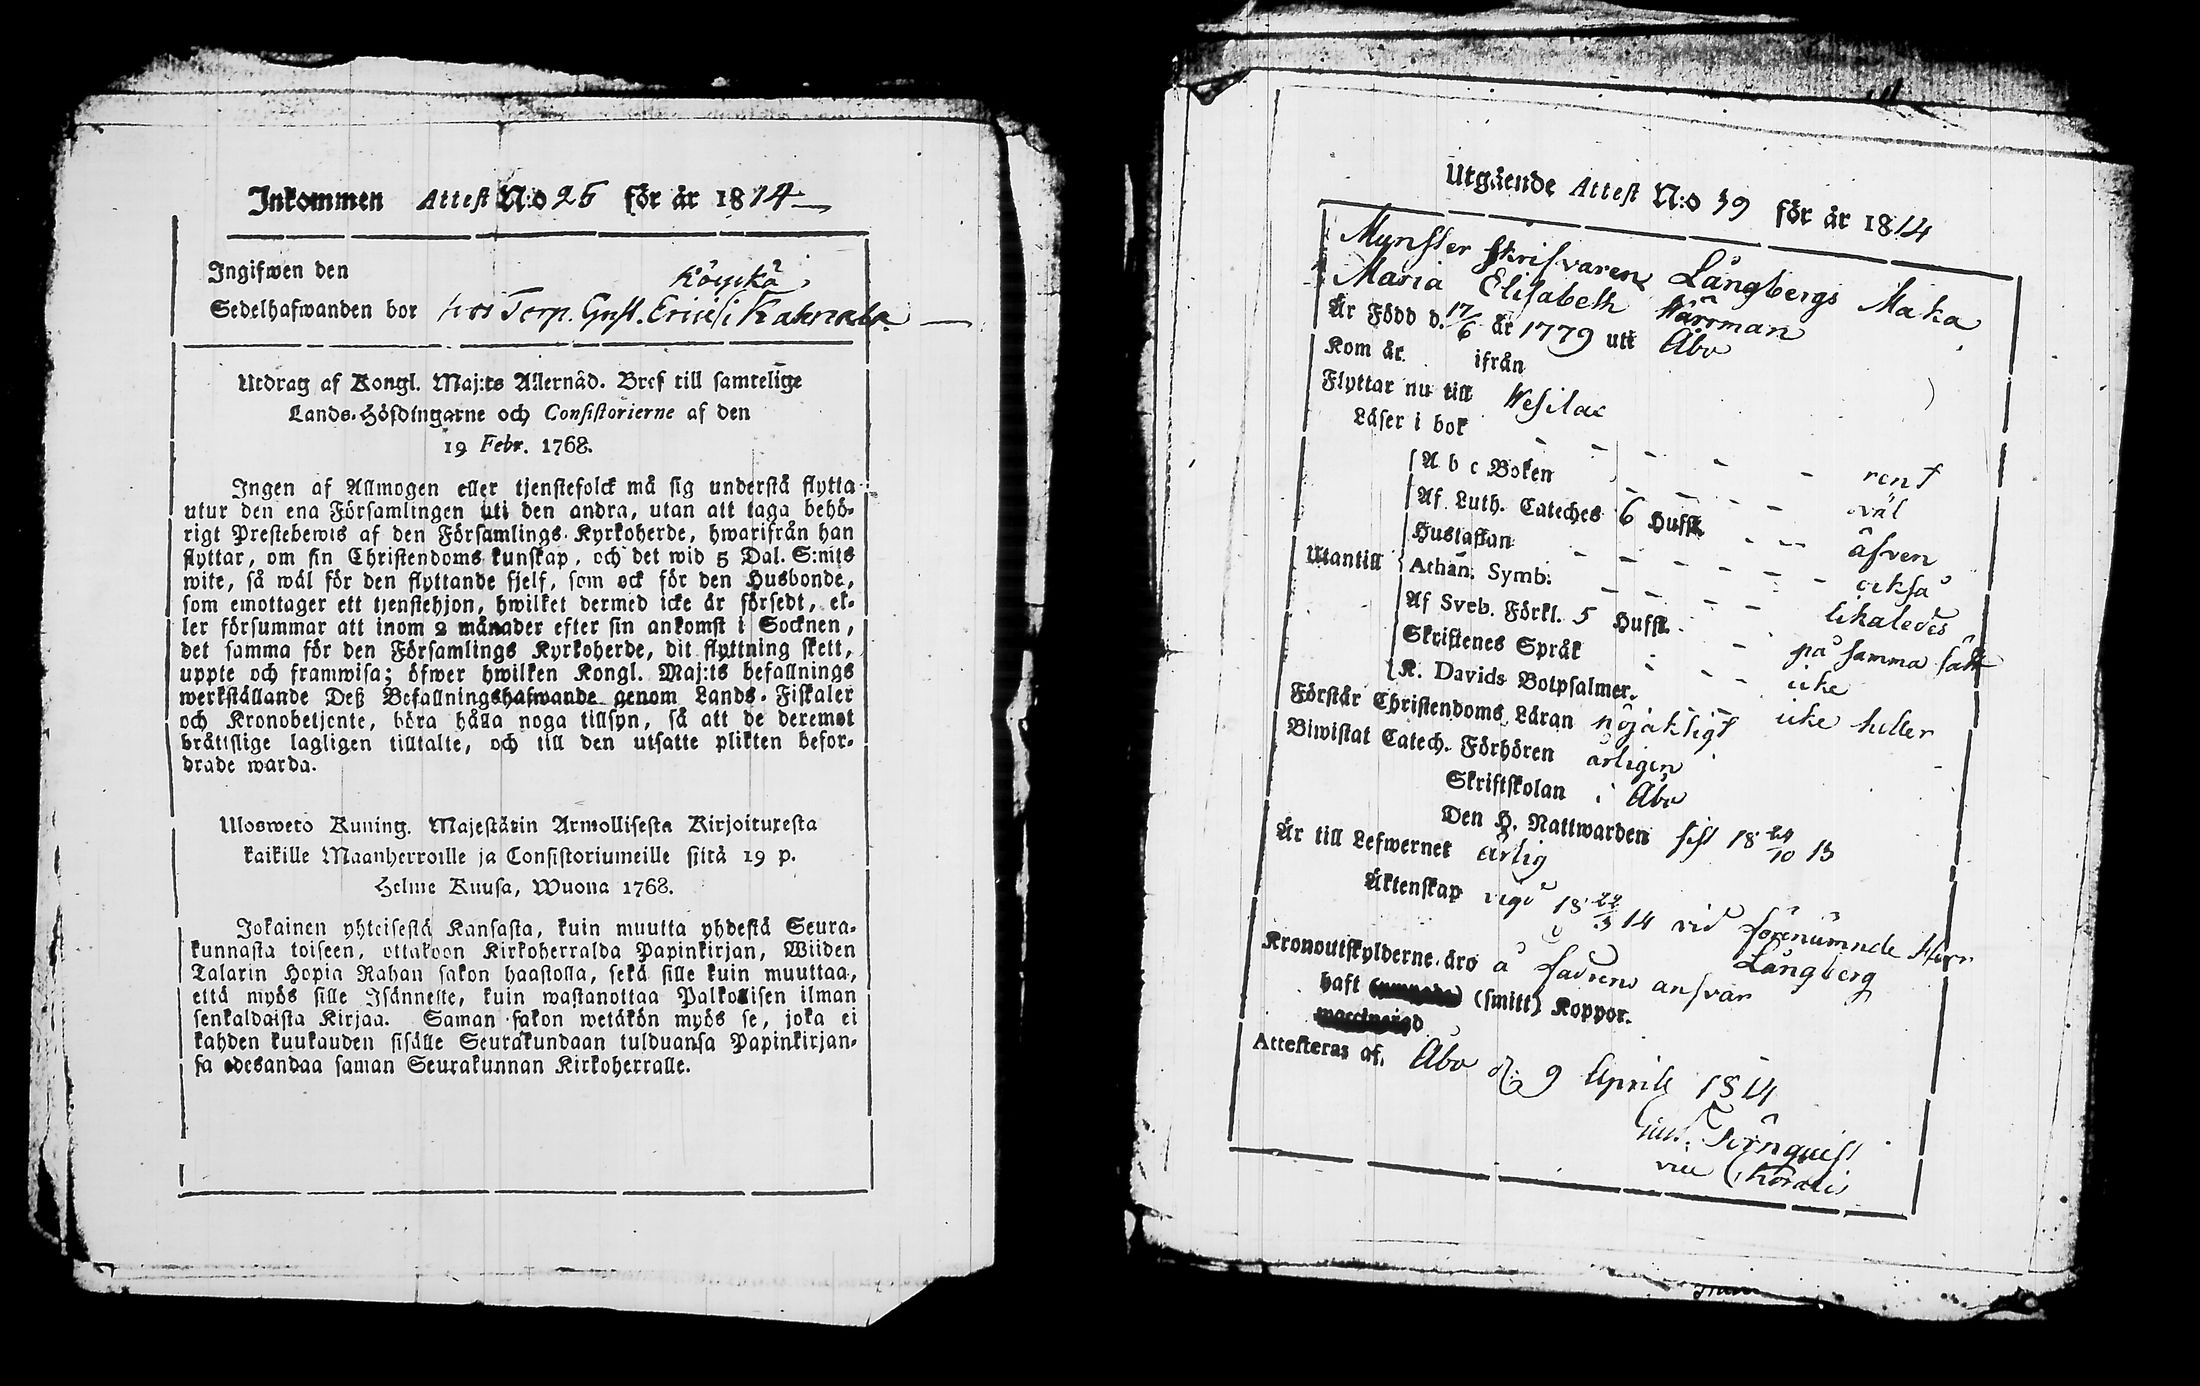 Inkommen Attest N:o 25 för år 1814
Ingifwen den
Sedelhafwanden bor hos Torp. Gust. Erici i Kahnala
Utdrag af Kongl. Maj:ts Allernåd. Bref till samtelige
Lands-Höfdingarne och Consistorierne af den
19 Febr. 1768.
Ingen af Allmogen eller tjenstefolck må sig understå flytta
utur den ena Församlingen uti den andra, utan att taga behö-
rigt Prestebewis af den Församlings Kyrkoherde, hwarifrån han
flyttar, om sin Christendoms kunskap, och det wid 5 Dal. S:mts
wite, så wäl för den flyttande sjelf, som ock för den Husbonde,
som emottager ett tjenstehjon, hwilket dermed icke är försedt, el-
ler försummar att inom 2 månader efter sin ankomst i Socknen,
det samma för den Församlings Kyrkoherde, dit flyttning skett,
uppte och framwisa; öfwer hwilken Kongl. Maj:ts befallnings
werkställande Deß Befallningshafwande genom Lands-Fiskaler
och Kronobetjente, böra hålla noga tillsyn, så att de deremot
bråttslige lagligen tilltalte, och till den utsatte plikten befor-
drade warda.
Ulosweto Kuning. Majestätin Armollisesta Kirjoituxesta
kaikille Maanherroille ja Consistoriumeille siitä 19 p.
Helme Kuusa, Wuona 1768.
Jokainen yhteisestä Kansasta, kuin muutta yhdestä Seura-
kunnasta toiseen, ottakoon Kirkoherralda Papinkirjan, Wiiden
Talarin Hopia Rahan sakon haastolla, sekä sille kuin muuttaa,
että myös sille Isännelle, kuin wastanottaa Palkollisen ilman
senkaldaista Kirjaa. Saman sakon wetäkön myös se, joka ei
kahden kuukauden sisälle Seurakundaan tulduansa Papinkirjan-
sa edesandaa saman Seurakunnan Kirkoherralle.
Utgående Attest N:o 39 för år 1814
Mynster Skrifvaren Långbergs Maka
Maria Elisabeth Närrman
Är Född d. 17/6 år 1779 uti Åbo
Kom år ifrån
Flyttar nu till Wesilax
Läser i bok - - - - rent
Utantill
A b c Boken - - - - wäl
Af Luth. Cateches 6 Hufst. - - äfven
Hustaflan - - - - - också
Athan. Symb. - - - - likaledes
Af Sveb. Förkl. 5 Hufst. - på samma sätt
Skriftenes Språk - - - icke
K. Davids Botpsalmer. - icke heller
Förstår Christendoms Läran nöjaktigt
Biwistat Catech. Förhören årligen
Skriftskolan i Åbo
Den H. Nattwarden sist 18 24/10 13
Är till Lefwernet ärlig
Äktenskap vigd 18 22/3 14 vid förenämnde Herr
Långberg
Kronoutskylderne äro å fadrens ansvar
haft (smitt) Koppor.
Attesteras af. Åbo d. 9 Aprill 1814
Törnquist